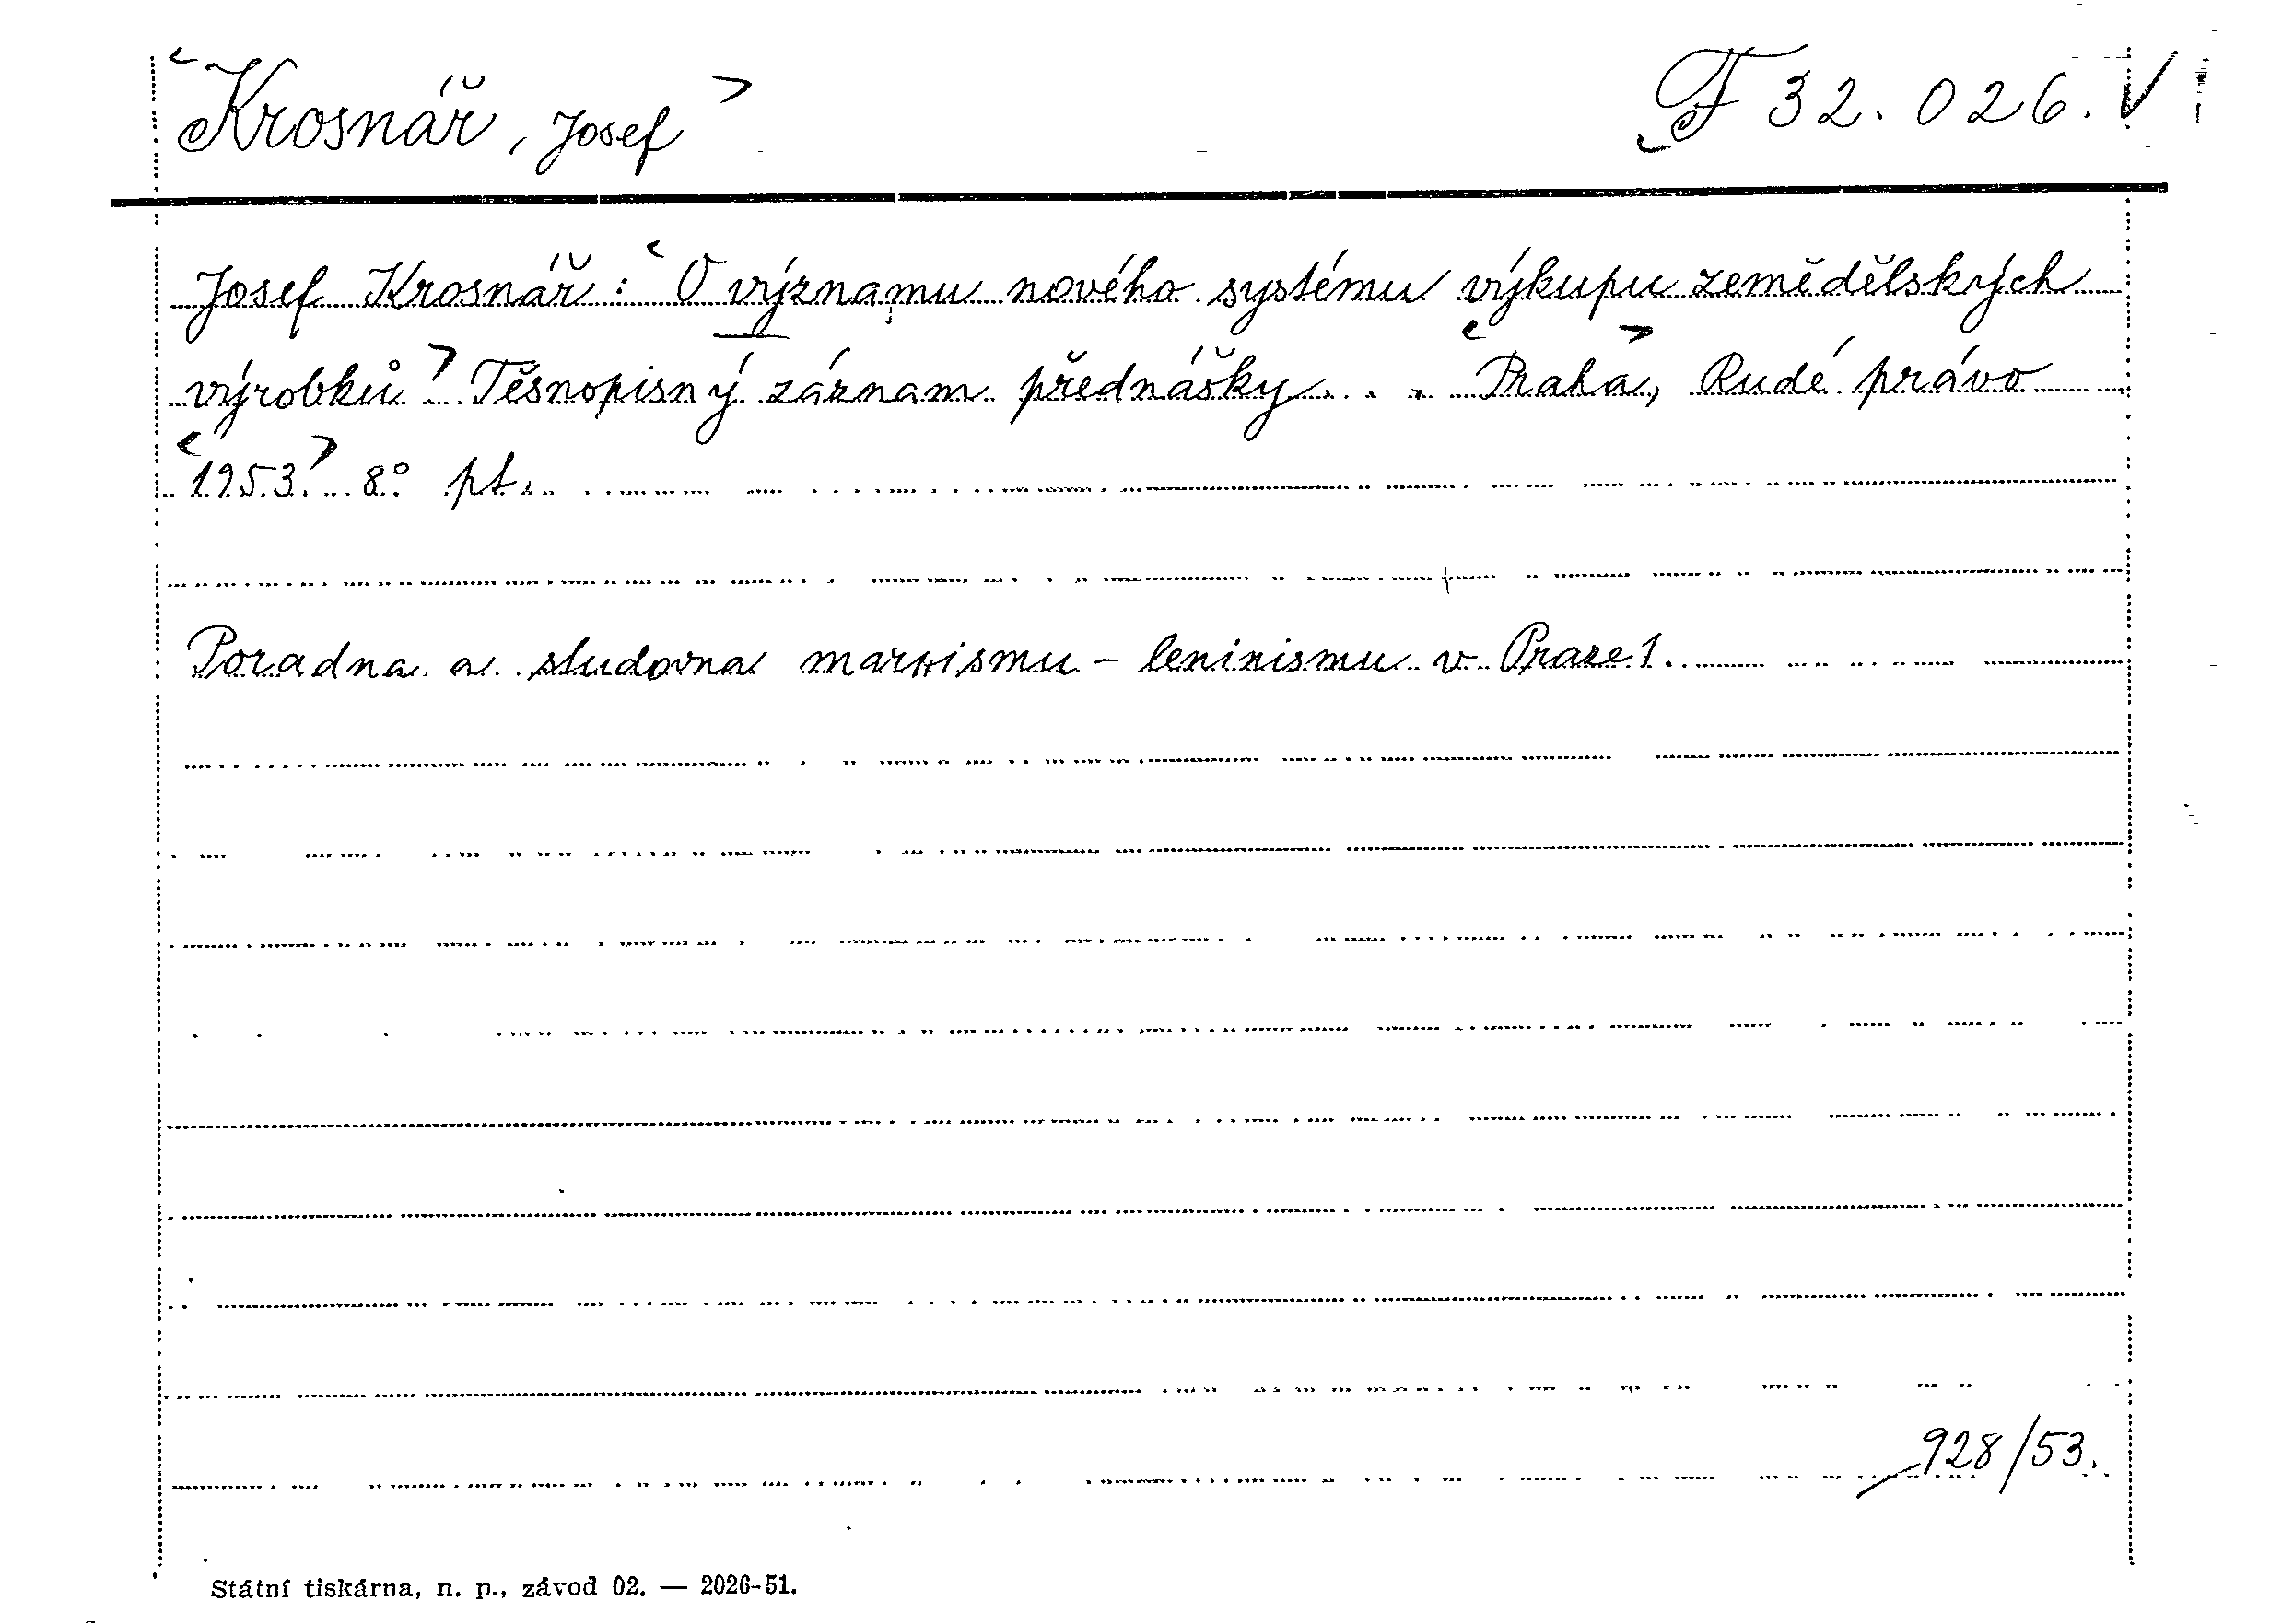 <Krosnář, Josef> F 32.026.
Josef Krosnář: <O významu nového systému výkupu zemědělských
výrobků.> Těsnopisný záznam přednášky... <Praha>, Rudé právo
<1953>. 8° pt.
Poradna a studovna marxismu - leninismu v Praze 1.
928/53.
Státní tiskárna, n. p., závod 02. — 2026-51.